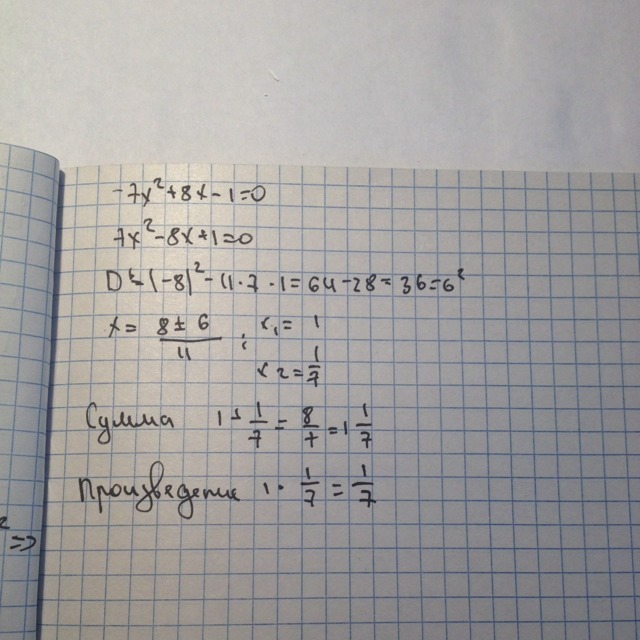 -7x²+8x-1=0
7x²-8x+1=0
D=(-8)²-4·7·1=64-28=36=6²
x= (8±6)/11 ; x₁= 1
x2= 1/7
Сумма 1+ 1/7 = 8/7 =1 1/7
Произведение 1· 1/7 = 1/7
² =>